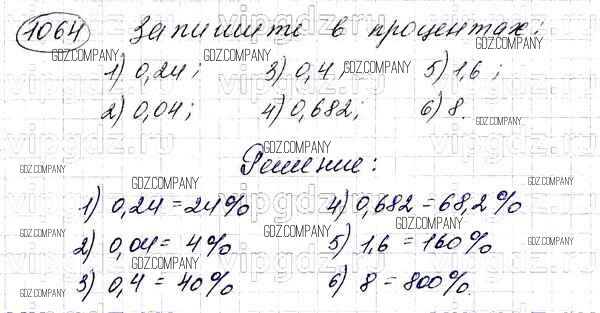 1064 Запишите в процентах:
1) 0,24; 3) 0,4; 5) 1,6;
2) 0,04; 4) 0,682; 6) 8.
Решение:
1) 0,24 = 24% 4) 0,682 = 68,2%
2) 0,04 = 4% 5) 1,6 = 160%
3) 0,4 = 40% 6) 8 = 800%.
GDZ.COMPANY
vipgdz.ru